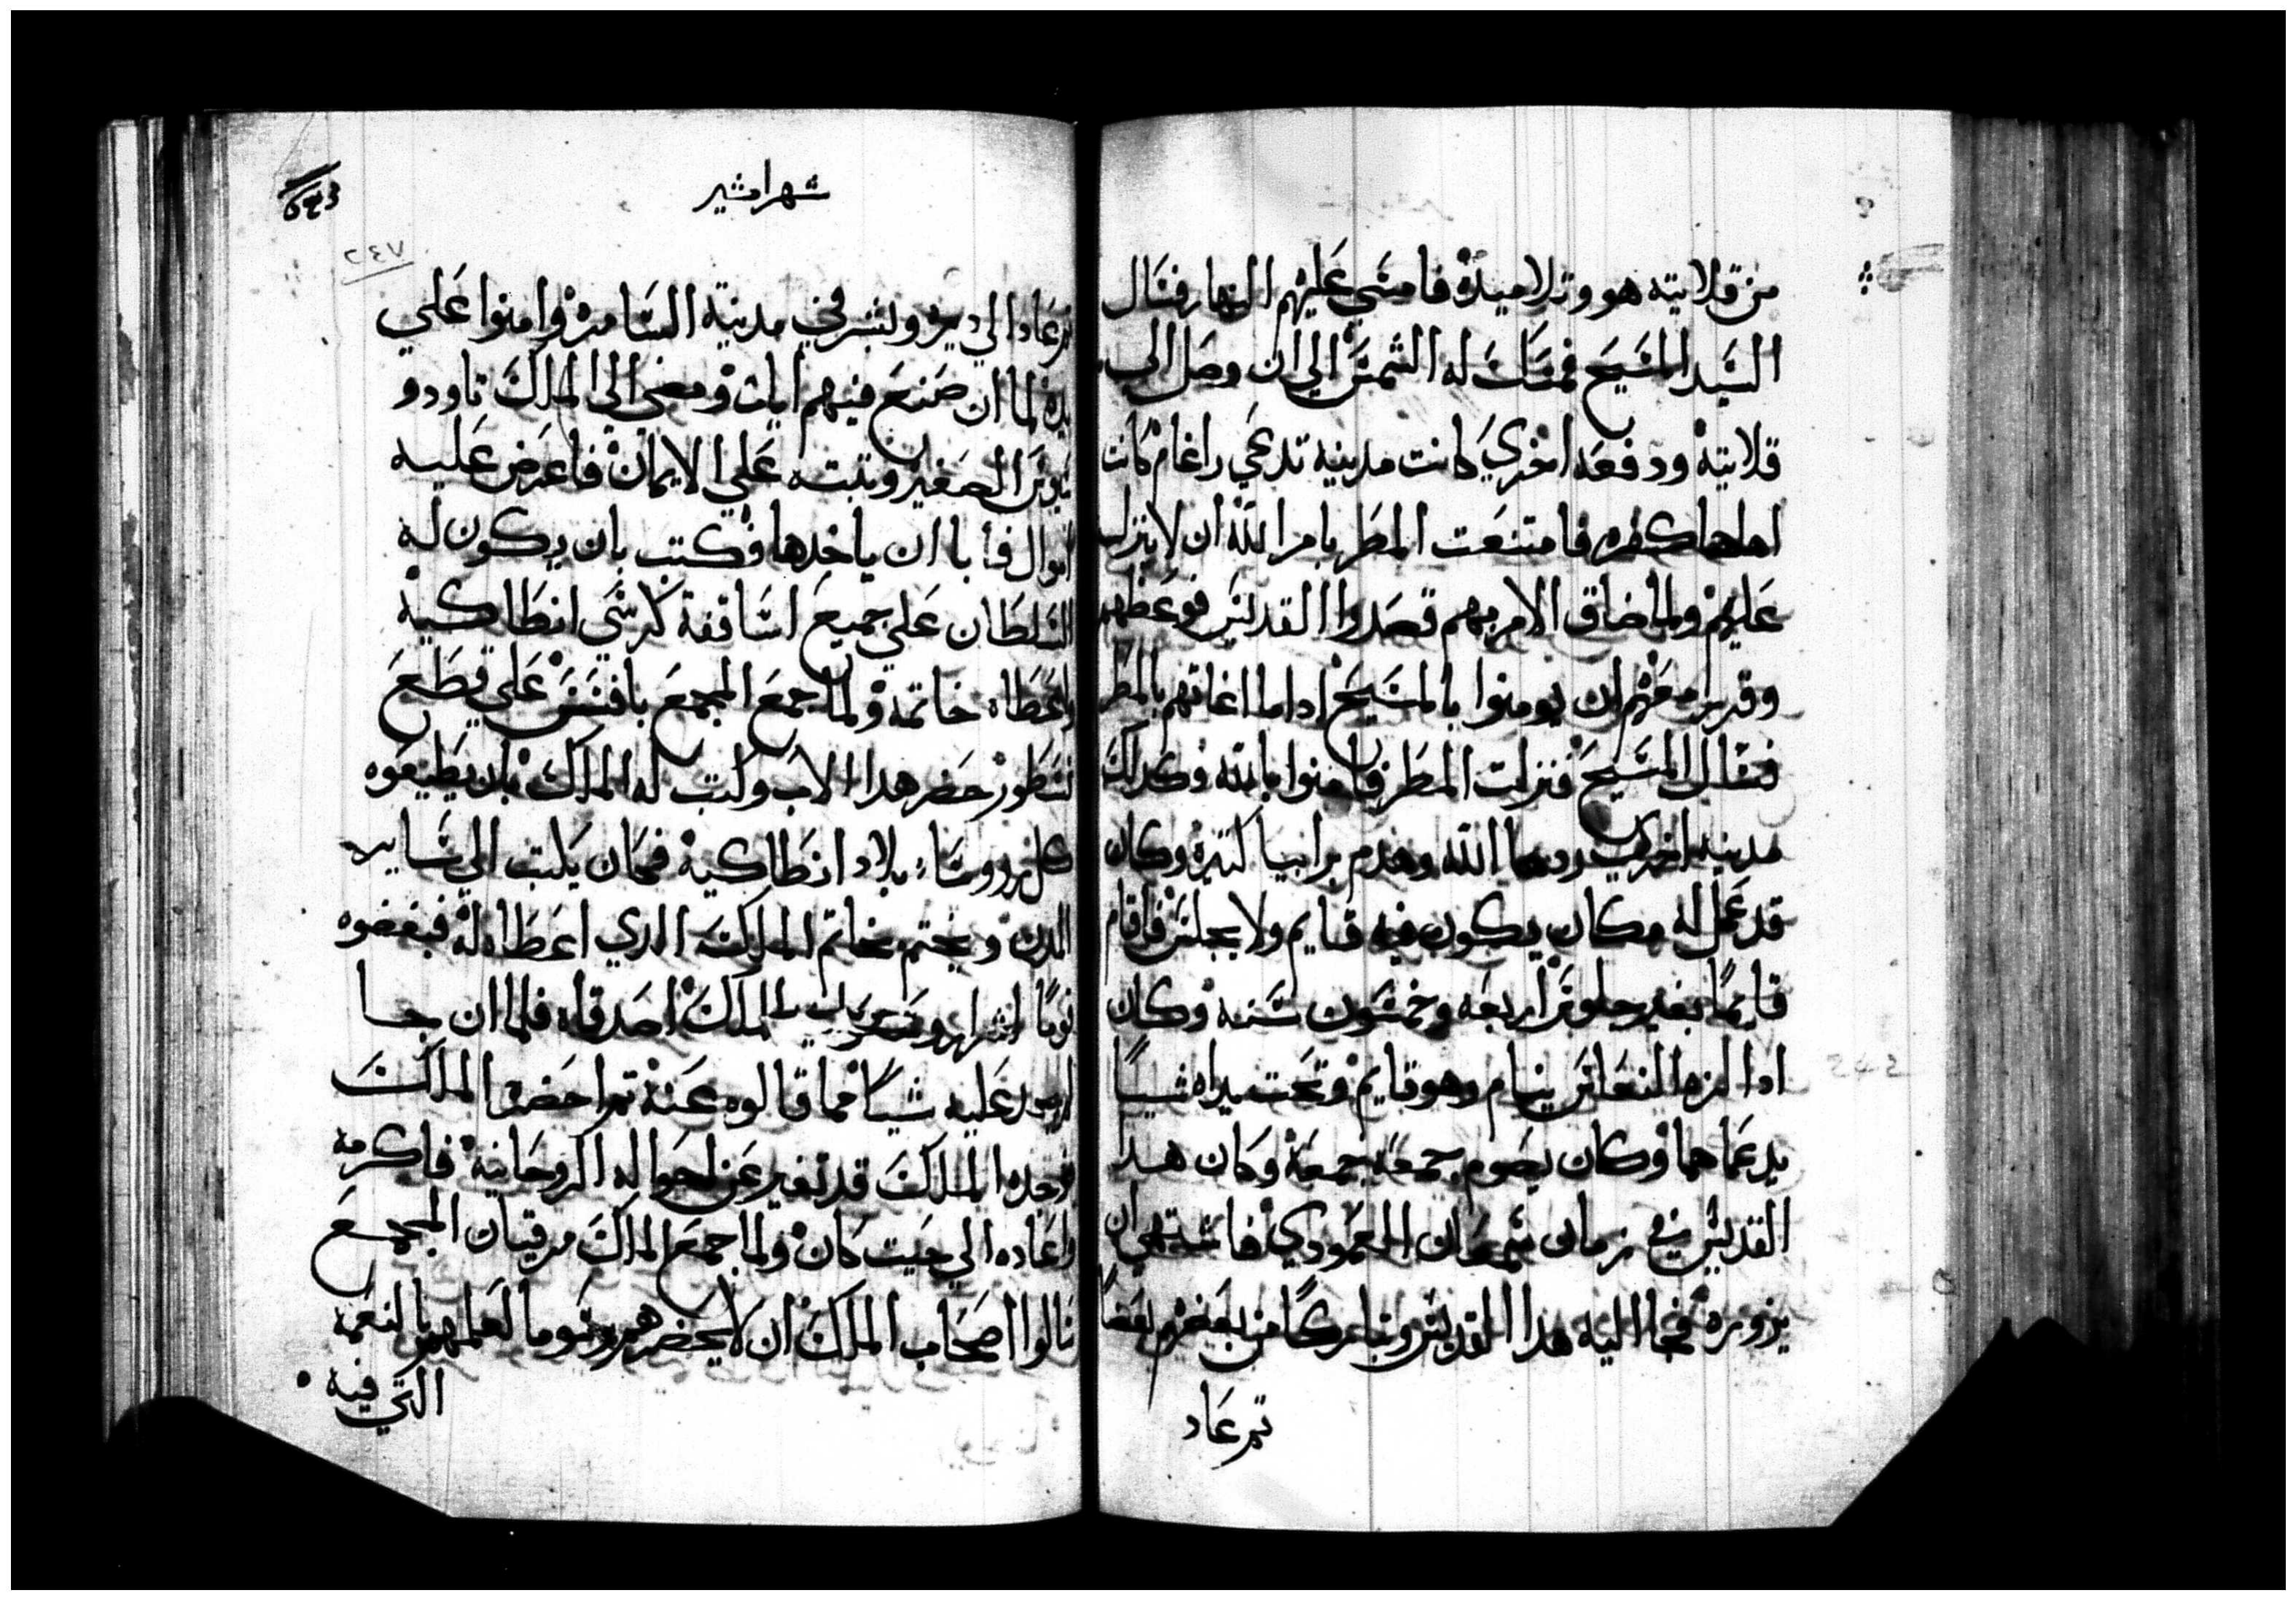 من قلايته هو وتلاميذه فامسي عليهم النهار فسال
السيد المسيح فمسكت له الشمس الي ان وصل الي
قلايته ودفعه اخري كانت مدينه تدعي راغام كانت
اهلها كفره فامتنعت المطر بامر الله ان لا ينزل
عليهم ولما ضاق الامر بهم قصدوا القديس فوعظهم
وقرر معهم ان يومنوا بالمسيح اداما اغاثهم بالمطر
فسال المسيح فنزلت المطر فامنوا بالله وكدلك
مدينه اخري ردها الله وهدم برابيا كتيره وكان
قد عمل له مكان يكون فيه قايم ولا يجلس فاقام
قايمًا بغير جلوس اربعه وخمسون سنه وكان
ادا لزه النعاس ينام وهو قايم وتحت يداه شيًا
يدعماهما وكان يصوم جمعه جمعه وكان هدا
القديس في زمان سمعان العمودي فاشتهي ان
يزوره فجا اليه هدا القديس وتباركا من بعضهم بعضًا
تم عاد
شهر امشير
٢٤٧
تم عاد الي ديره وبشر في مدينة السامره وامنوا علي
يده لما ان صنع فيهم ايات ومضي الي الملك تاودو
سيوس الصغير وتبته علي الايمان فاعرض عليه
اموال فأبا ان ياخدها فكتب بان يكون له
السلطان علي جميع اساقفة كرسي انطاكية
واعطاه خاتمه ولما جمع المجمع بافسس علي قطع
نسطور حضر هدا الاب وكتب له الملك بان يطيعوه
كل روسا بلاد انطاكية فكان يكتب الي ساير
المدن ويختم بخاتم الملك الدي اعطاه له فبغضوه
قومًا اشرار الملك اصدقاه فلما ان جا
لم يجد عليه شيًا مما قالوه عنه تم احضره الملك
فوجده الملك قد تغير عن احواله الروحانية فاكرمه
واعاده الي حيت كان ولما جمع الملك مرقيان المجمع
سالوا اصحاب الملك ان لا يحضر لعلمهم بالنعمه
التي فيه